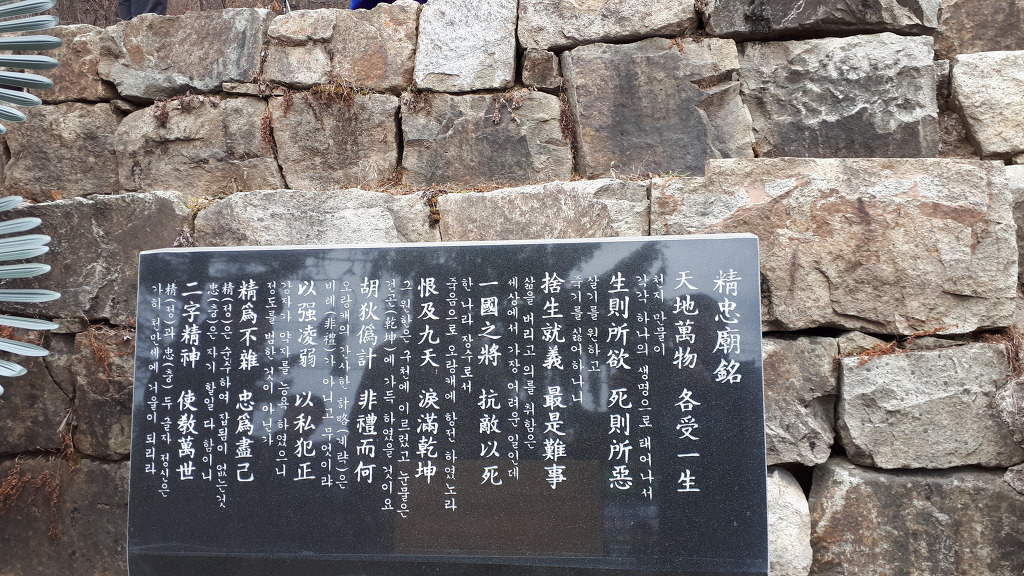 精忠廟銘
天地萬物 各受一生
천지 만물이
각각 하나의 생명으로 태어나서
生則所欲 死則所惡
살기를 원하고
죽기를 싫어하나니
捨生就義 最是難事
삶을 버리고 의를 취함은
세상에서 가장 어려운 일인데
一國之將 抗敵以死
한 나라 장수로서
죽음으로 오랑캐에 항번 하였노라
恨及九天 淚滿乾坤
그 원한은 구천에 이르렀고 눈물은
건곤(乾坤)에 가득 하였을 것이요
胡狄僞計 非禮而何
오랑캐의 간사한 하략(계략)은
비례(非禮)가 아니고 무엇이라
以强凌弱 以私犯正
강자가 약자를 능욕 하였으니
정도를 범한 것이 아닌가
精爲不雜 忠爲盡己
精(정)은 순수하여 잡됨이 없는것
忠(충)은 자기 할일 다 함이니
二字精神 使敎萬世
精(정)과 忠(충) 두 글자 정신은
가히 천만세에 거울이 되리라